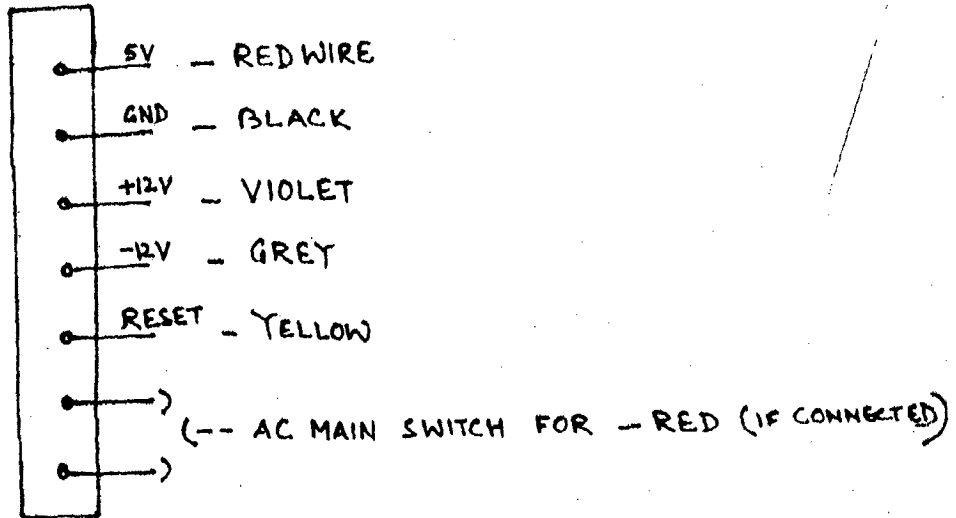 5V - RED WIRE
GND - BLACK
+12V - VIOLET
-12V - GREY
RESET - YELLOW
(-- AC MAIN SWITCH FOR - RED (IF CONNECTED)